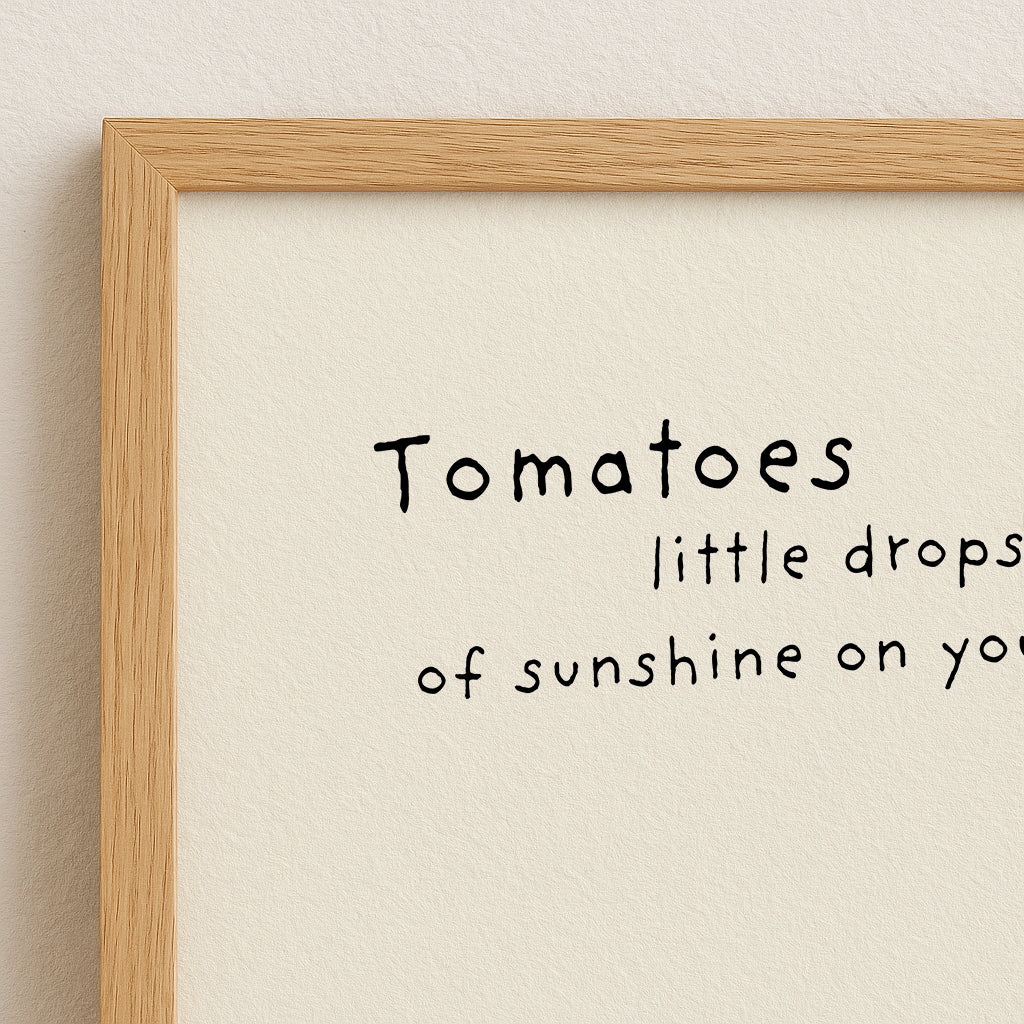 Tomatoes
little drops
of sunshine on